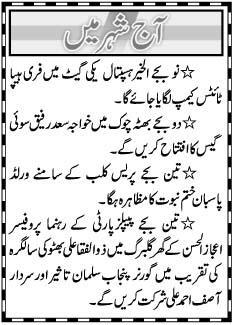 آج شہر میں
☆نو بجے الخیر ہسپتال یکی گیٹ میں فری ہیپا
ٹائٹس کیمپ لگایا جائے گا۔
☆دو بجے بھٹہ چوک میں خواجہ سعد رفیق سوئی
گیس کا افتتاح کریں گے۔
☆تین بجے پریس کلب کے سامنے ورلڈ
پاسبان ختم نبوت کا مظاہرہ ہو گا۔
☆تین بجے پیپلز پارٹی کے رہنما پروفیسر
اعجاز الحسن کے گھر گلبرگ میں ذوالفقار علی بھٹو کی سالگرہ
کی تقریب میں گورنر پنجاب سلمان تاثیر اور سردار
آصف احمد علی شرکت کریں گے۔